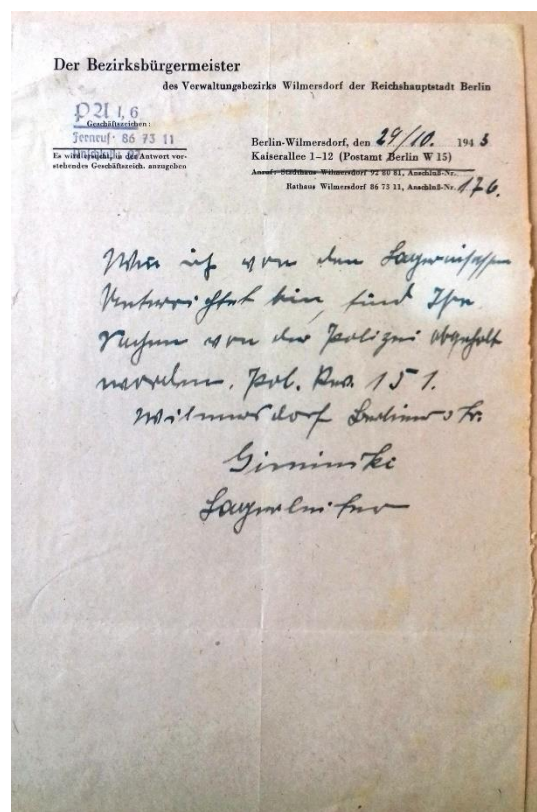 Der Bezirksbürgermeister
des Verwaltungsbezirks Wilmersdorf der Reichshauptstadt Berlin
PA I, 6
Geschäftszeichen:
Fernruf: 86 73 11
Es wird ersucht, in der Antwort vor-
stehendes Geschäftszeich. anzugeben
Berlin-Wilmersdorf, den 29/10. 1943
Kaiserallee 1–12 (Postamt Berlin W 15)
Anruf: Stadthaus Wilmersdorf 92 80 81, Anschluß-Nr.
Rathaus Wilmersdorf 86 73 11, Anschluß-Nr. 176.
Wie ich von den
Unterrichtet bin, sind Ihre
Sachen von der Polizei abgeholt
worden. Pol. Rev. 151.
Wilmersdorf Berlinerstr.
Giminski
Lagerleiter